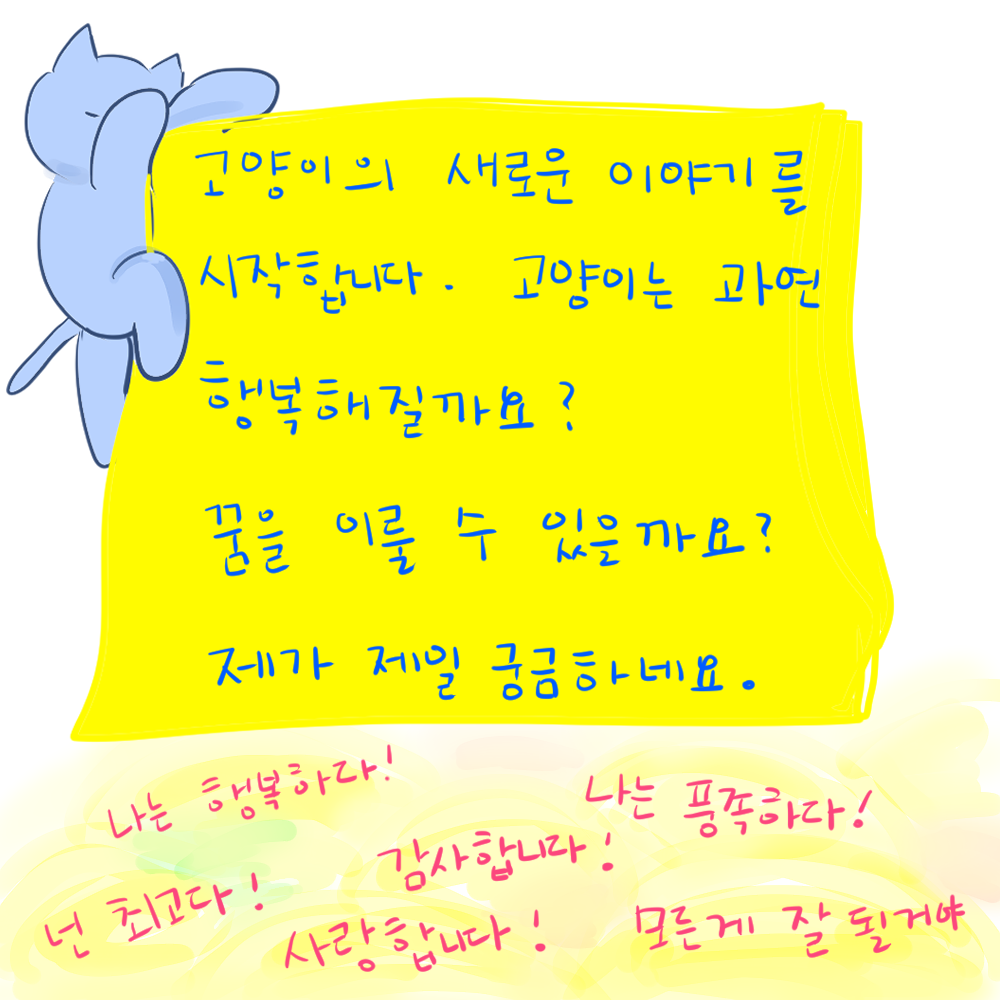 고양이의 새로운 이야기를
시작합니다. 고양이는 과연
행복해질까요?
꿈을 이룰 수 있을까요?
제가 제일 궁금하네요.
나는 행복하다!
나는 풍족하다!
감사합니다!
넌 최고다!
사랑합니다!
모든게 잘 될거야